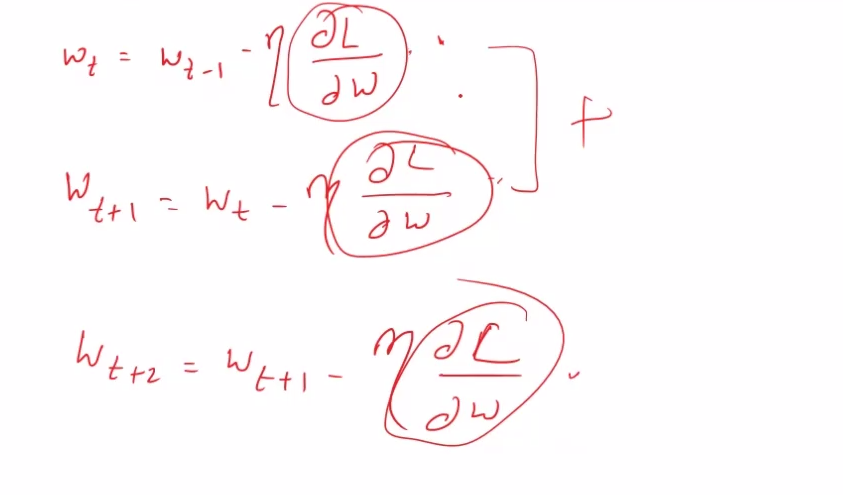 w_t = w_{t-1} - η ∂L/∂w
+
w_{t+1} = w_t - η ∂L/∂w
w_{t+2} = w_{t+1} - η ∂L/∂w